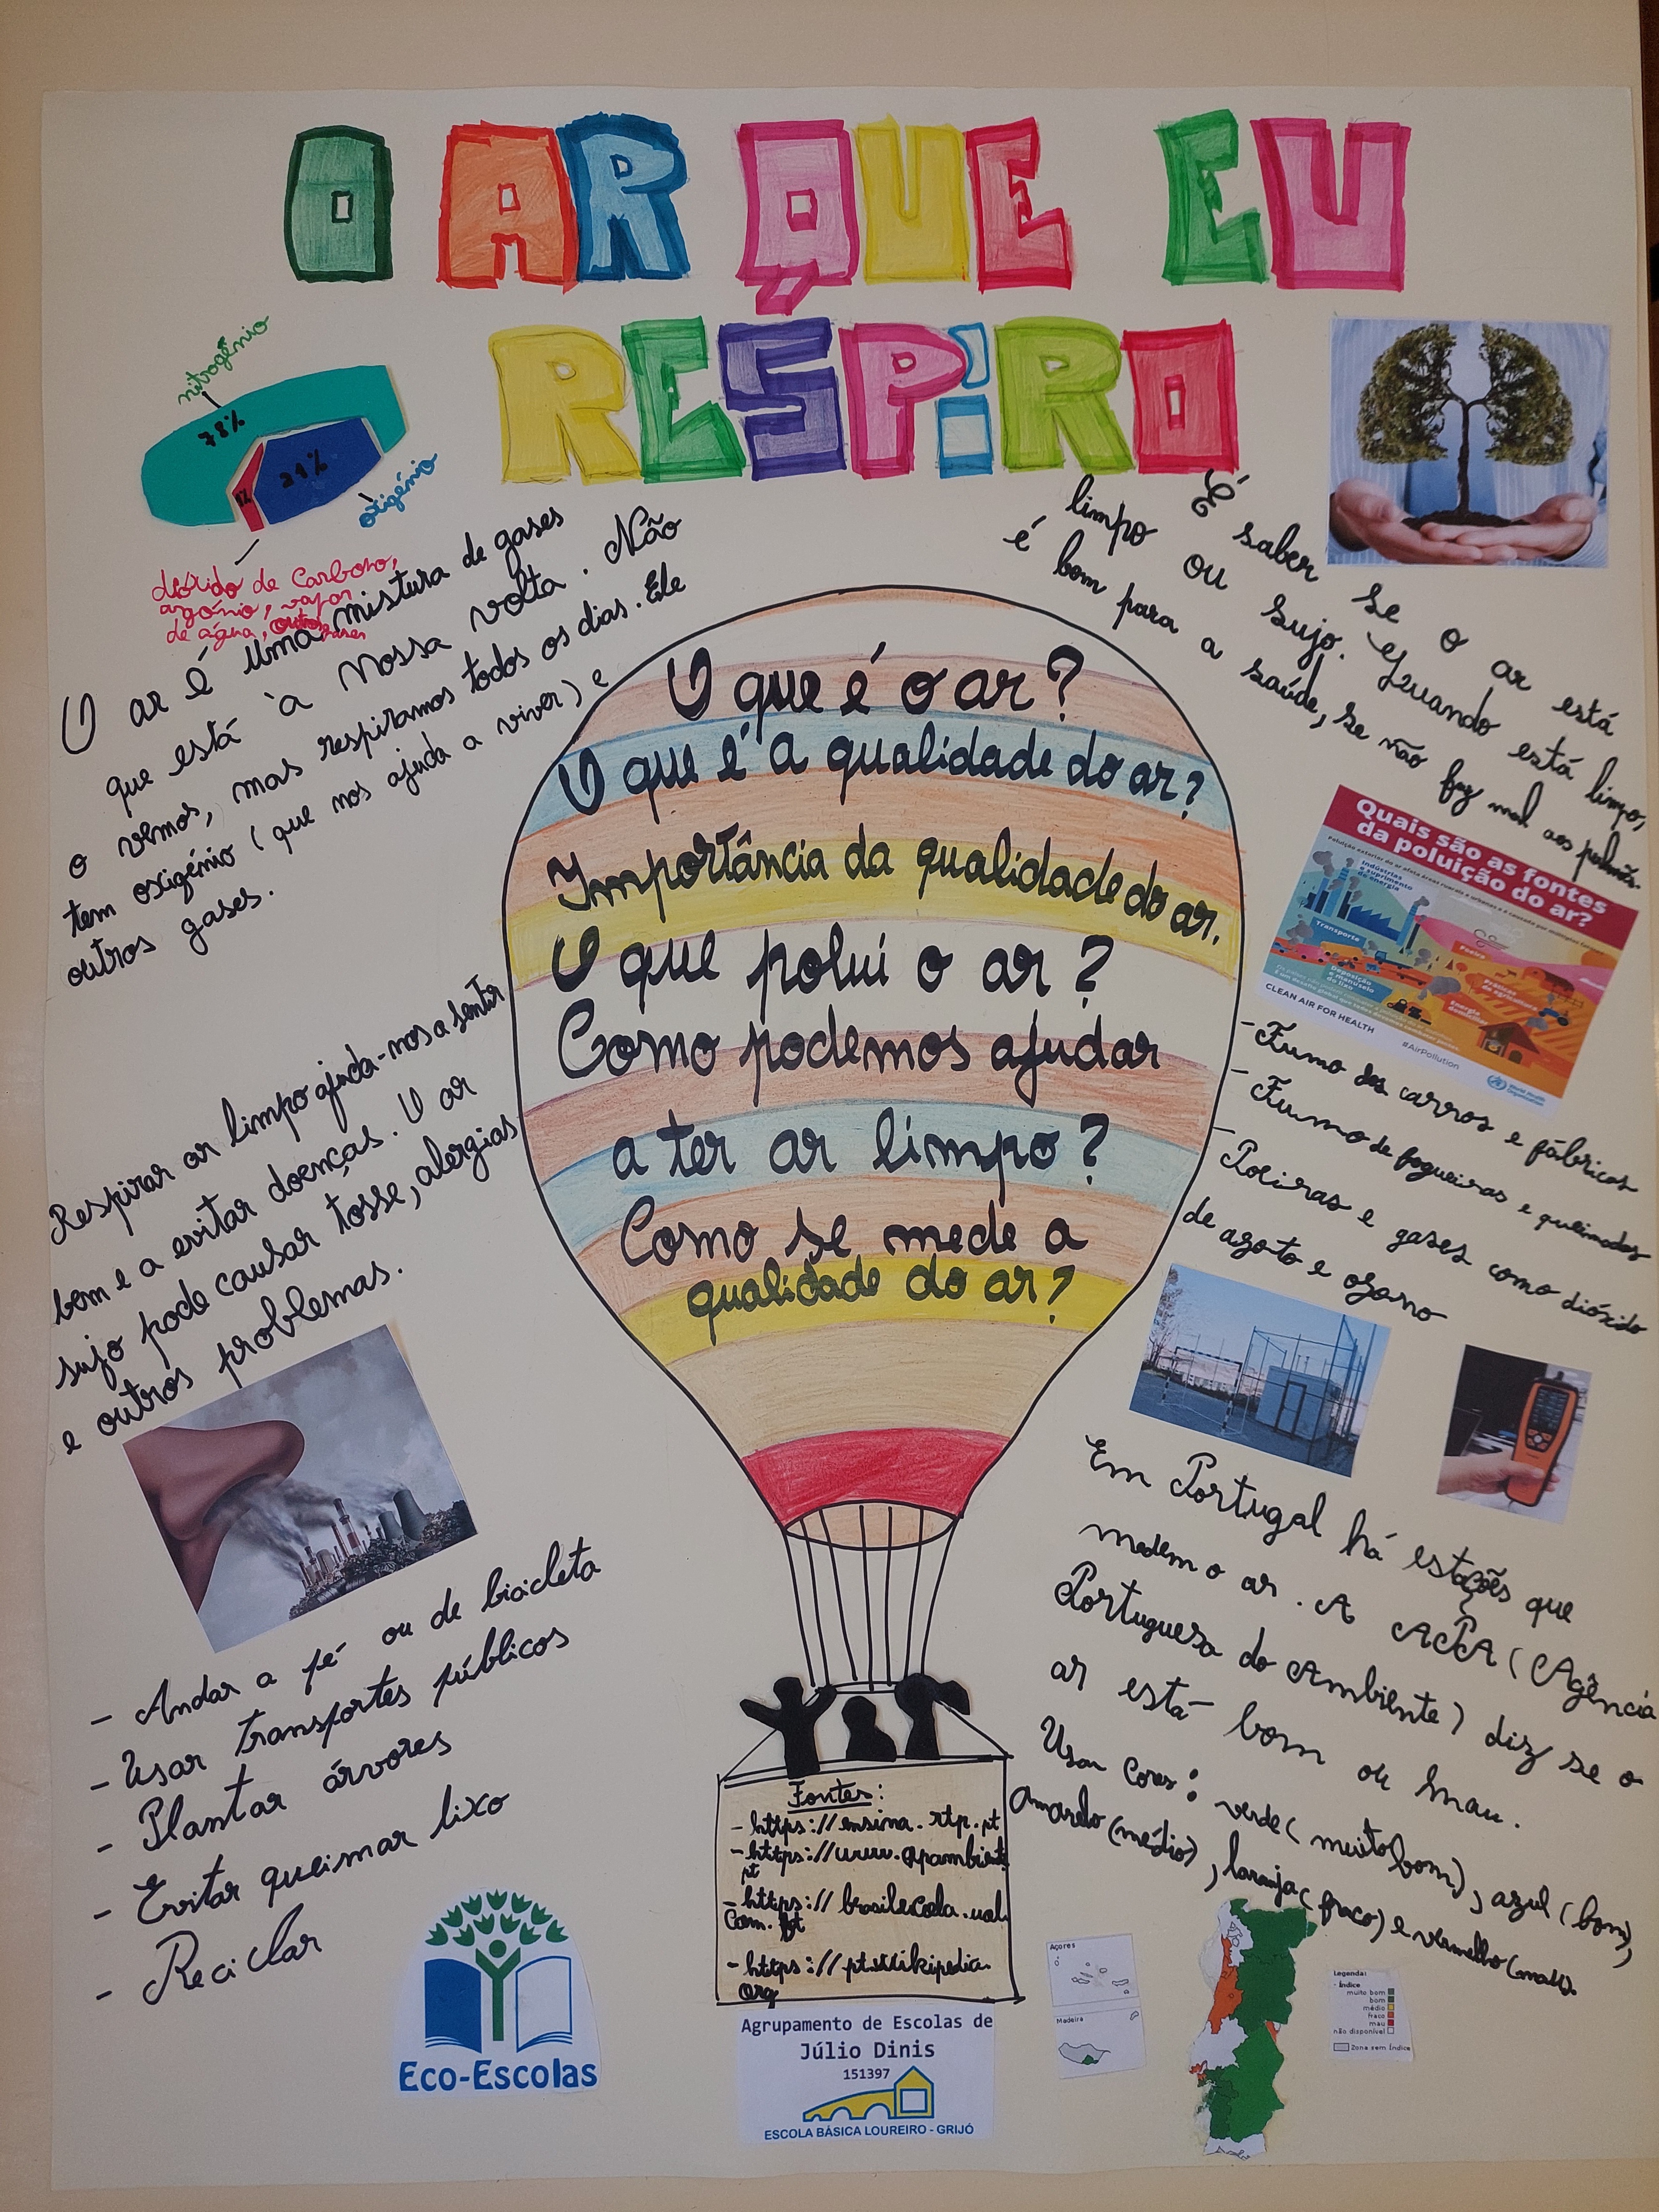 O AR QUE EU
RESPiRO
nitrogénio
78%
21%
1%
oxigénio
dióxido de Carbono,
argónio, vapor
de água, outros gases
O ar é uma mistura de gases
que está à nossa volta. Não
o vemos, mas respiramos todos os dias. Ele
tem oxigénio (que nos ajuda a viver) e
outros gases.
É saber se o ar está
limpo ou sujo. Quando está limpo,
é bom para a saúde, se não faz mal aos pulmões.
O que é o ar?
O que é a qualidade do ar?
Importância da qualidade do ar.
O que polui o ar?
Como podemos ajudar
a ter ar limpo?
Como se mede a
qualidade do ar?
Quais são as fontes
da poluição do ar?
Indústrias
e suprimento
de energia
Transporte
Poeira
Práticas
de agricultura
Deposição
e manuseio
do lixo
Energia
doméstica
CLEAN AIR FOR HEALTH
#AirPollution
World Health
Organization
Respirar ar limpo ajuda-nos a sentir
bem e a evitar doenças. O ar
sujo pode causar tosse, alergias
e outros problemas.
- Fumo dos carros e fábricas
- Fumo de fogueiras e queimadas
- Poeiras e gases como dióxido
de azoto e ozono
- Andar a pé ou de bicicleta
- Usar transportes públicos
- Plantar árvores
- Evitar queimar lixo
- Reciclar
Em Portugal há estações que
medem o ar. A APA (Agência
Portuguesa do Ambiente) diz se o
ar está bom ou mau.
Usam Cores: verde (muito bom), azul (bom),
Amarelo (médio), laranja (fraco) e vermelho (mau).
Fontes:
- https://ensina.rtp.pt
- https://www.apambiente
pt
- https://brasilescola.uol.
Com.br
- https://pt.wikipedia.
Org
Eco-Escolas
Agrupamento de Escolas de
Júlio Dinis
151397
ESCOLA BÁSICA LOUREIRO - GRIJÓ
Açores
Madeira
Legenda:
- Índice
muito bom
bom
médio
fraco
mau
não disponível
Zona sem Índice